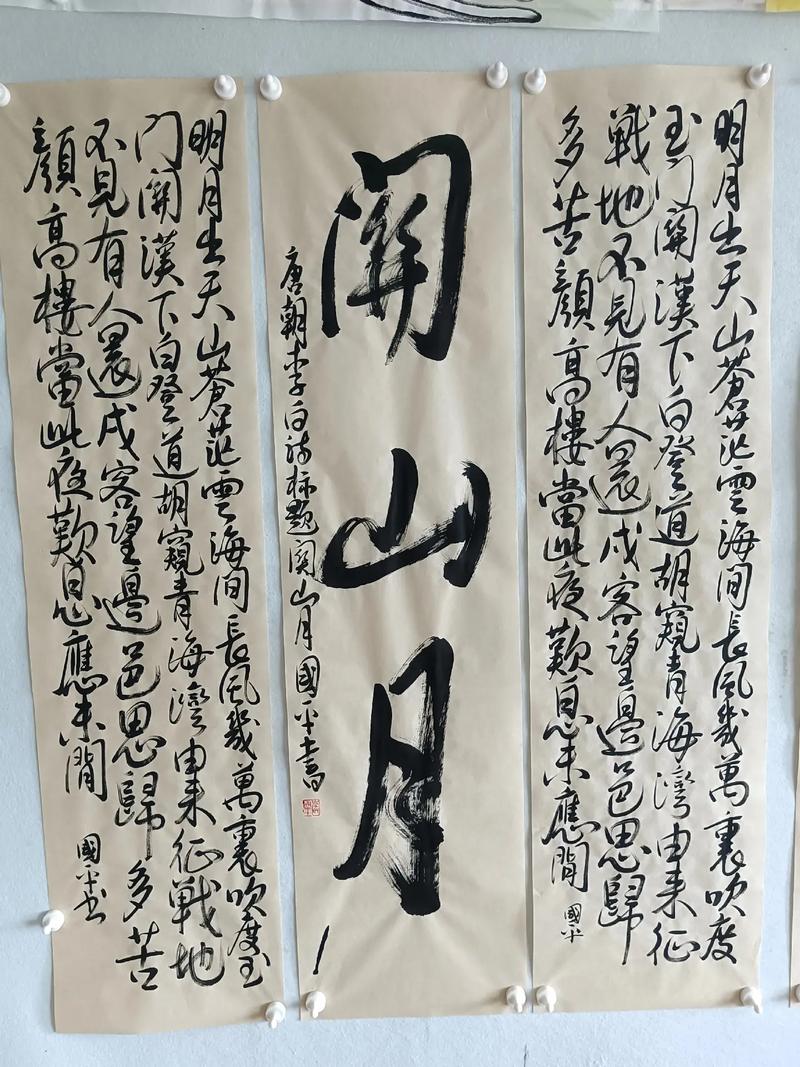 明月出天山蒼茫雲海間長風幾萬裏吹度
玉門關漢下白登道胡窺青海灣由来征
戰地不見有人還戍客望邊邑思歸
多苦顏高樓當此夜歎息未應閒
國平
關山月
唐朝李白詩标题関山月國平書
明月出天山蒼茫雲海間長風幾萬裏吹度玉
門關漢下白登道胡窺青海灣由来征戰地
不見有人還戍客望邊邑思歸多苦
顏高樓當此夜歎息應未閒
國平书